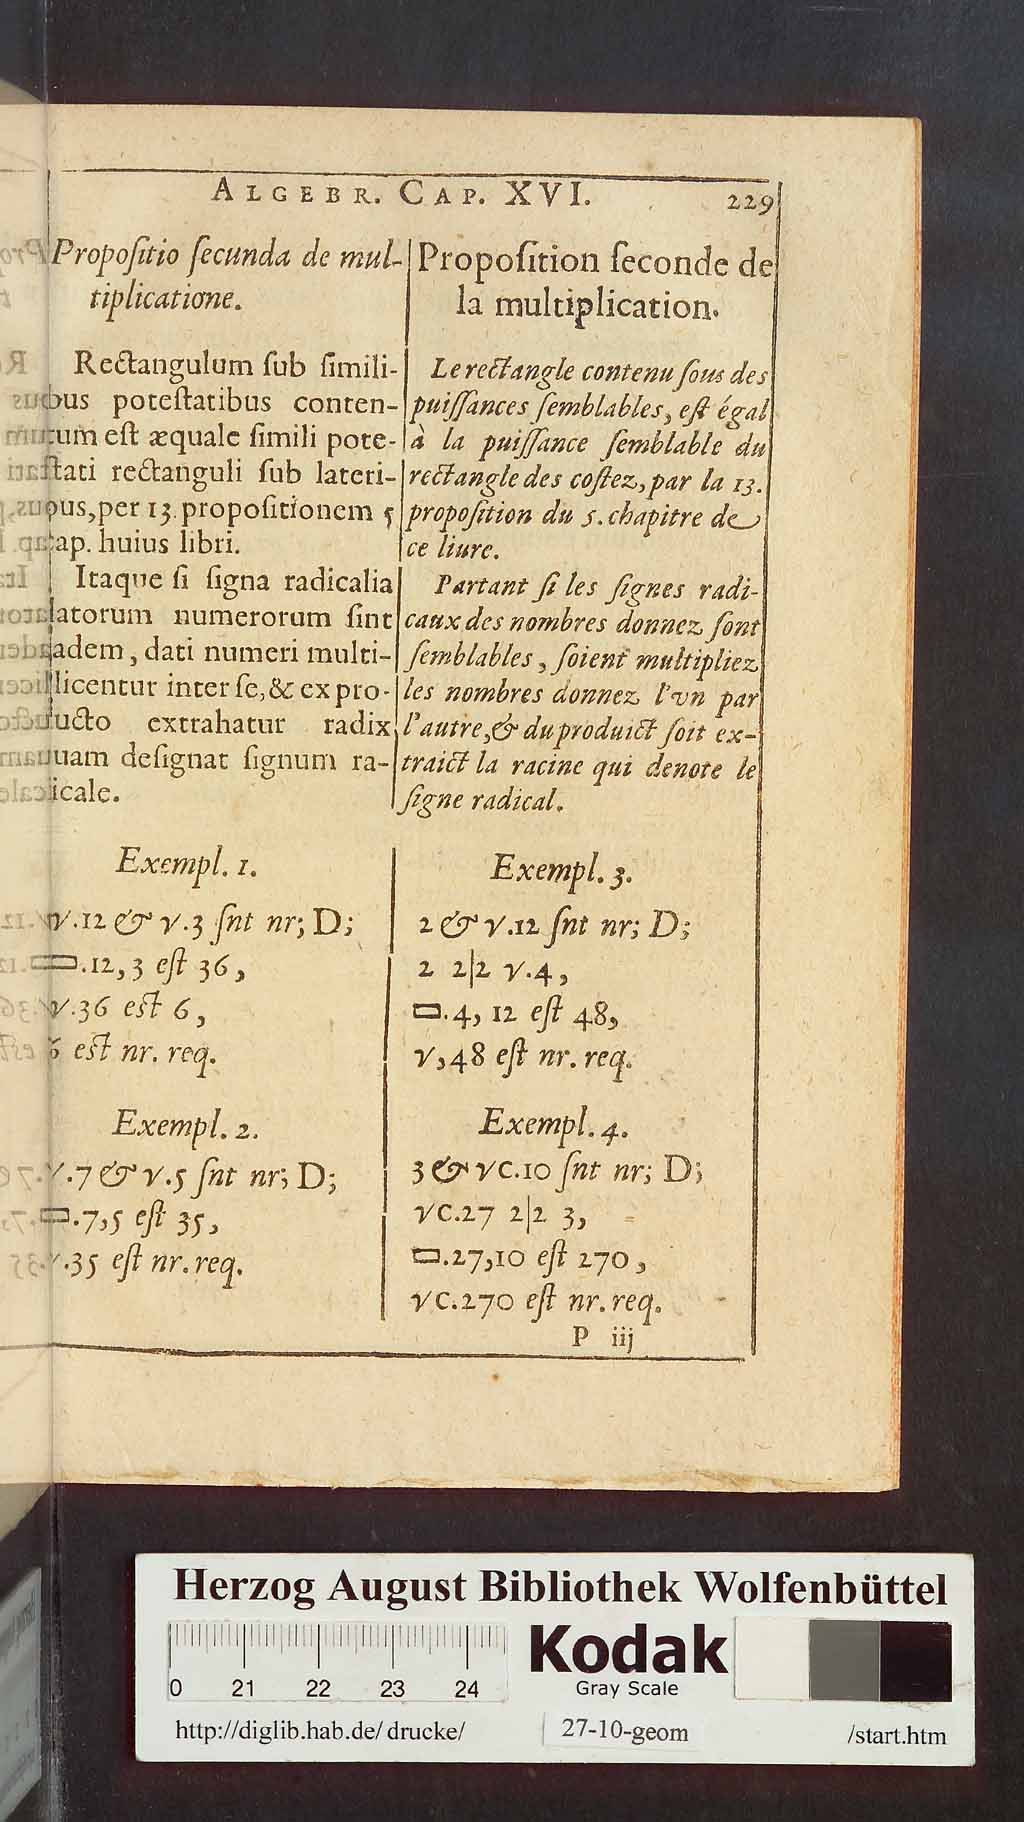 ALGEBR. CAP. XVI. 229
Propoſitio ſecunda de mul-
tiplicatione.
Rectangulum ſub ſimili-
bus poteſtatibus conten-
tum eſt æquale ſimili pote-
ſtati rectanguli ſub lateri-
bus, per 13. propoſitionem 5
cap. huius libri.
Itaque ſi ſigna radicalia
latorum numerorum ſint
eadem, dati numeri multi-
plicentur inter ſe, & ex pro-
ducto extrahatur radix
quam deſignat ſignum ra-
dicale.
Exempl. 1.
√.12 & √.3 ſnt nr; D;
▭.12, 3 eſt 36,
√.36 eſt 6,
6 eſt nr. req.
Exempl. 2.
√.7 & √.5 ſnt nr; D;
▭.7,5 eſt 35,
√.35 eſt nr. req.
Propoſition ſeconde de
la multiplication.
Le rectangle contenu ſous des
puiſſances ſemblables, eſt égal
à la puiſſance ſemblable du
rectangle des coſtez, par la 13.
propoſition du 5. chapitre de
ce liure.
Partant ſi les ſignes radi-
caux des nombres donnez ſont
ſemblables, ſoient multipliez
les nombres donnez l'vn par
l'autre, & du produict ſoit ex-
traict la racine qui denote le
ſigne radical.
Exempl. 3.
2 & √.12 ſnt nr; D;
2 2|2 √.4,
▭.4, 12 eſt 48,
√,48 eſt nr. req.
Exempl. 4.
3 & √C.10 ſnt nr; D;
√C.27 2|2 3,
▭.27,10 eſt 270,
√C.270 eſt nr. req.
P iij
Herzog August Bibliothek Wolfenbüttel
0 21 22 23 24
Kodak
Gray Scale
http://diglib.hab.de/drucke/ 27-10-geom /start.htm